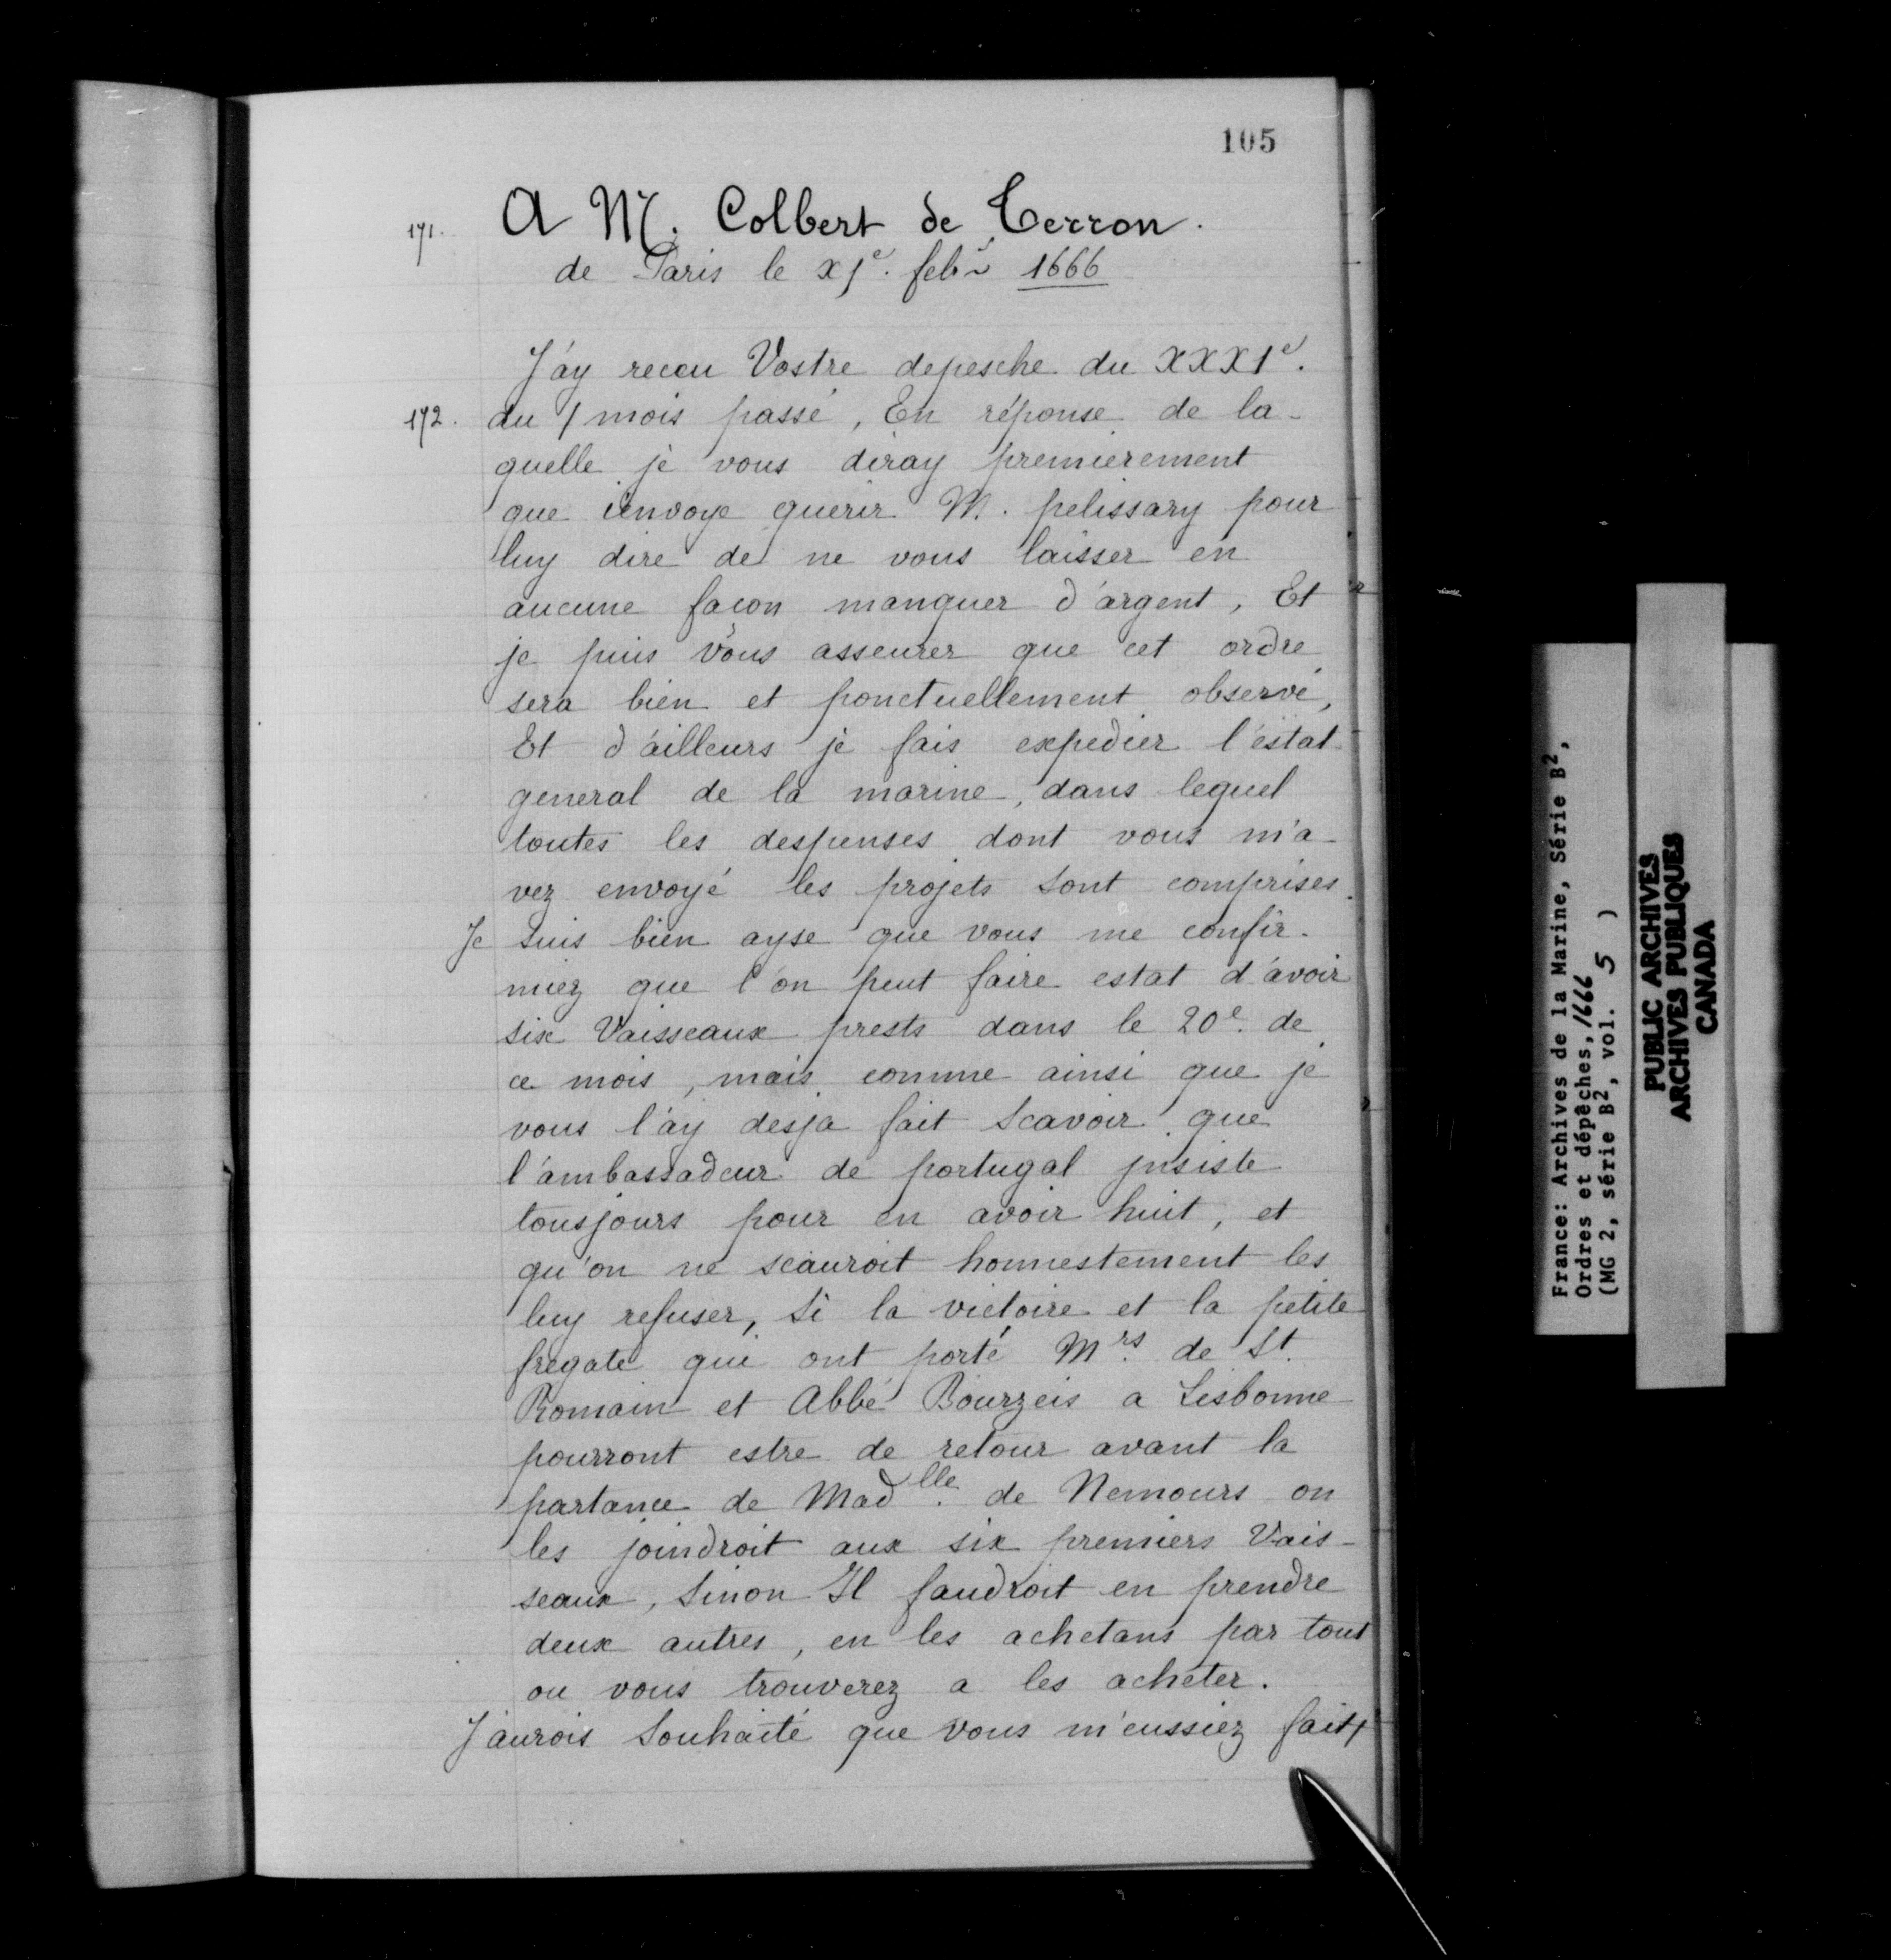 105
171. A M. Colbert de Terron.
de Paris le xj^e. feb^r 1666
J'ay receu Vostre depesche du XXXI^e.
172. du / mois passé, En réponse de la-
quelle je vous diray premierement
que i'envoye querir M. pelissary pour
luy dire de ne vous laisser en
aucune façon manquer d'argent, Et
je puis vous asseurer que cet ordre
sera bien et ponctuellement observé,
Et d'ailleurs je fais expedier l'estat
general de la marine, dans lequel
toutes les despenses dont vous m'a-
vez envoyé les projets sont comprises.
Je suis bien ayse que vous me confir-
miez que l'on peut faire estat d'avoir
six Vaisseaux prests dans le 20^e. de
ce mois, mais comme ainsi que je
vous l'ay desja fait scavoir que
l'ambassadeur de portugal jnsiste
tousjours pour en avoir huit, et
qu'on ne scauroit honnestement les
luy refuser, si la victoire et la petite
fregate qui ont porté M^rs. de S^t.
Romain et Abbé Bourzeis a Lisbonne
pourront estre de retour avant la
partance de Mad^lle. de Nemours on
les joindroit aux six premiers Vais-
seaux, sinon Il faudroit en prendre
deux autres, en les achetans par tout
ou vous trouverez a les acheter.
J'aurois souhaité que vous m'eussiez fait/
France: Archives de la Marine, Série B²,
Ordres et dépêches, 1666
(MG 2, série B², vol. 5 )
PUBLIC ARCHIVES
ARCHIVES PUBLIQUES
CANADA